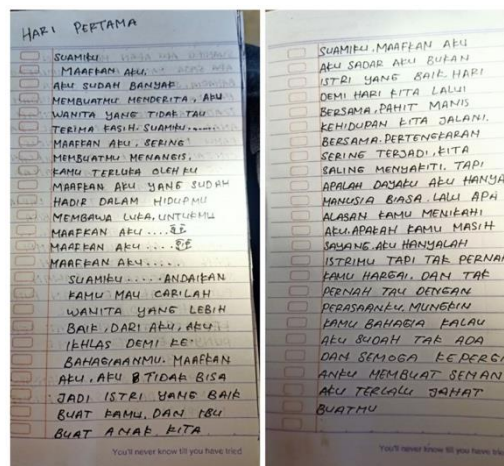 HARI PERTAMA
SUAMIKU
MAAFKAN AKU.
AKU SUDAH BANYAK
MEMBUATMU MENDERITA, AKU
WANITA YANG TIDAK TAU
TERIMA KASIH. SUAMIKU......
MAAFKAN AKU, SERING
MEMBUATMU MENANGIS,
KAMU TERLUKA OLEH KU
MAAFKAN AKU YANG SUDAH
HADIR DALAM HIDUPMU
MEMBAWA LUKA, UNTUKMU
MAAFKAN AKU....
MAAFKAN AKU....
MAAFKAN AKU.....
SUAMIKU.....ANDAIKAN
KAMU MAU CARILAH
WANITA YANG LEBIH
BAIK, DARI AKU, AKU
IKHLAS DEMI KE-
BAHAGIAANMU. MAAFKAN
AKU, AKU TIDAK BISA
JADI ISTRI YANG BAIK
BUAT KAMU, DAN IBU
BUAT ANAK KITA
You'll never know till you have tried
SUAMIKU, MAAFKAN AKU
AKU SADAR AKU BUKAN
ISTRI YANG BAIK. HARI
DEMI HARI KITA LALUI
BERSAMA, PAHIT MANIS
KEHIDUPAN KITA JALANI.
BERSAMA. PERTENGKARAN
SERING TERJADI, KITA
SALING MENYAKITI. TAPI
APALAH DAYAKU AKU HANYA
MANUSIA BIASA. LALU APA
ALASAN KAMU MENIKAHI
AKU. APAKAH KAMU MASIH
SAYANG. AKU HANYALAH
ISTRIMU TAPI TAK PERNAH
KAMU HARGAI. DAN TAK
PERNAH TAU DENGAN
PERASAANKU. MUNGKIN
KAMU BAHAGIA KALAU
AKU SUDAH TAK ADA
DAN SEMOGA KEPERGI
ANKU MEMBUAT SEMAN
AKU TERLALU JAHAT
BUATMU
You'll never know till you have tried